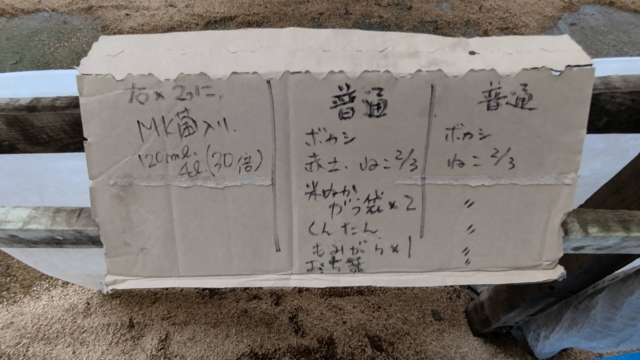 右×2に.
MK菌入り.
120ml.
4l.(30倍)
普通
ボカシ
赤土.ねこ2/3
米ぬか
ガラ袋×2
くんたん
もみがら×1
おち葉
普通
ボカシ
ねこ2/3
〃
〃
〃
〃